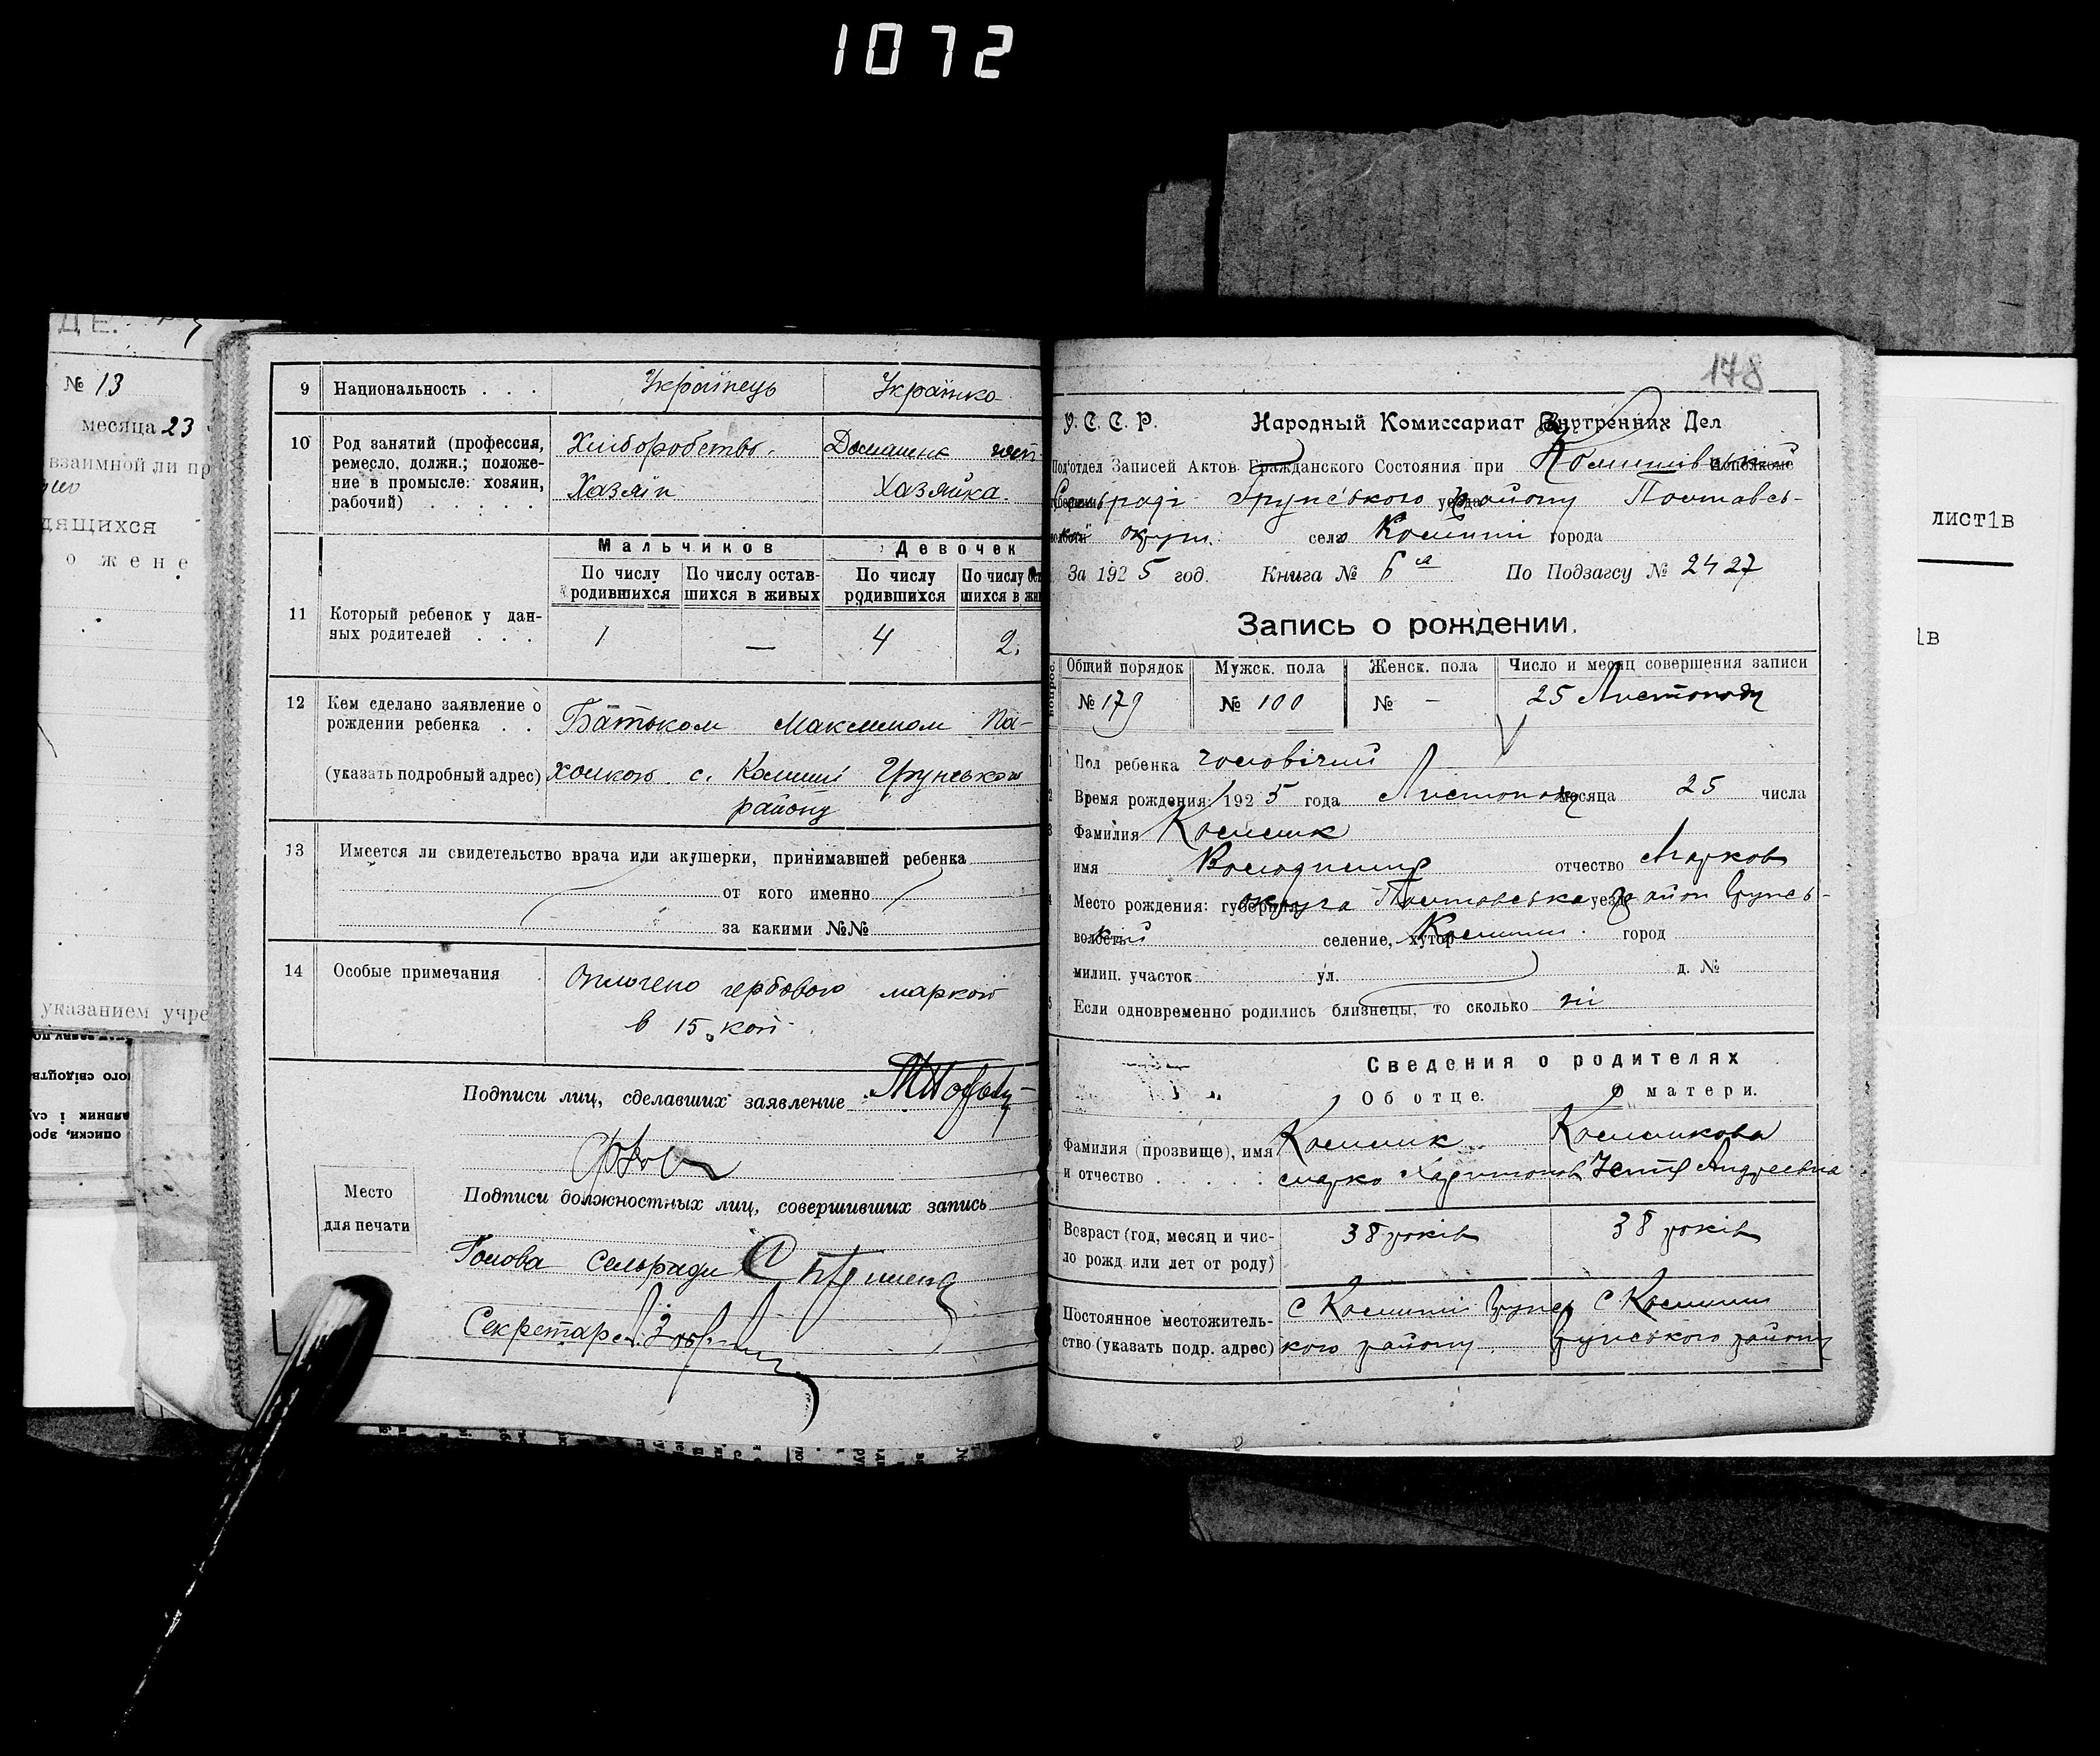 1072
ДЕ.
№ 13
месяца 23
взаимной ли пр
дящихся
о жене
указанием учре
9 Национальность . . . Українець Українка
10 Род занятий (профессия, ремесло, должн.; положе-
ние в промысле: хозяин, рабочий) . . . . .
Хліборобство. Домашнє
Хазяін Хазяйка.
Мальчиков Девочек
По числу родившихся По числу остав-шихся в живых По числу родившихся По числу
11 Который ребенок у дан-
ных родителей . . . 1 — 4 2.
12 Кем сделано заявление о
рождении ребенка . . Батьком Максимом Па-
(указать подробный адрес) хомкою с. Комиші Грунського
району
13 Имеется ли свидетельство врача или акушерки, принимавшей ребенка
от кого именно
за какими №№
14 Особые примечания Оплочено гербовою маркою
в 15 коп.
Подписи лиц, сделавших заявление
Подписи должностных лиц, совершивших запись
Место
для печати
Голова Сельради
Секретарь
178
У. С. С. Р. Народный Комиссариат Внутренних Дел
Под'отдел Записей Актов Гражданского Состояния при Комишівській
Сельраді Грунського району Полтавсь-
кої округи. село Комиші города
За 1925 год. Книга № 6 ая По Подзагсу № 2427
Запись о рождении.
Общий порядок Мужск. пола Женск. пола Число и месяц совершения записи
№ 179 № 100 № - 25 Листопаду
Пол ребенка чоловічий
Время рождения: 1925 года Листопаду месяца 25 числа
Фамилия
имя Володимир отчество Марков
Место рождения: губерния округа Полтавська уезд район Грунсь-
волость кий селение, хутор Комиши. город
милиц. участок ул. д. №
Если одновременно родились близнецы, то сколько ні
Сведения о родителях
Об отце. О матери.
Фамилия (прозвище), имя
и отчество . . . . . Марко Харитонов Андреевна
Возраст (год, месяц и чис-
ло рожд. или лет от роду) 38 років 38 років
Постоянное местожитель- С Комиші Грунсь С Комиши
ство (указать подр. адрес) кого району. Грунського району
лист1в
1в